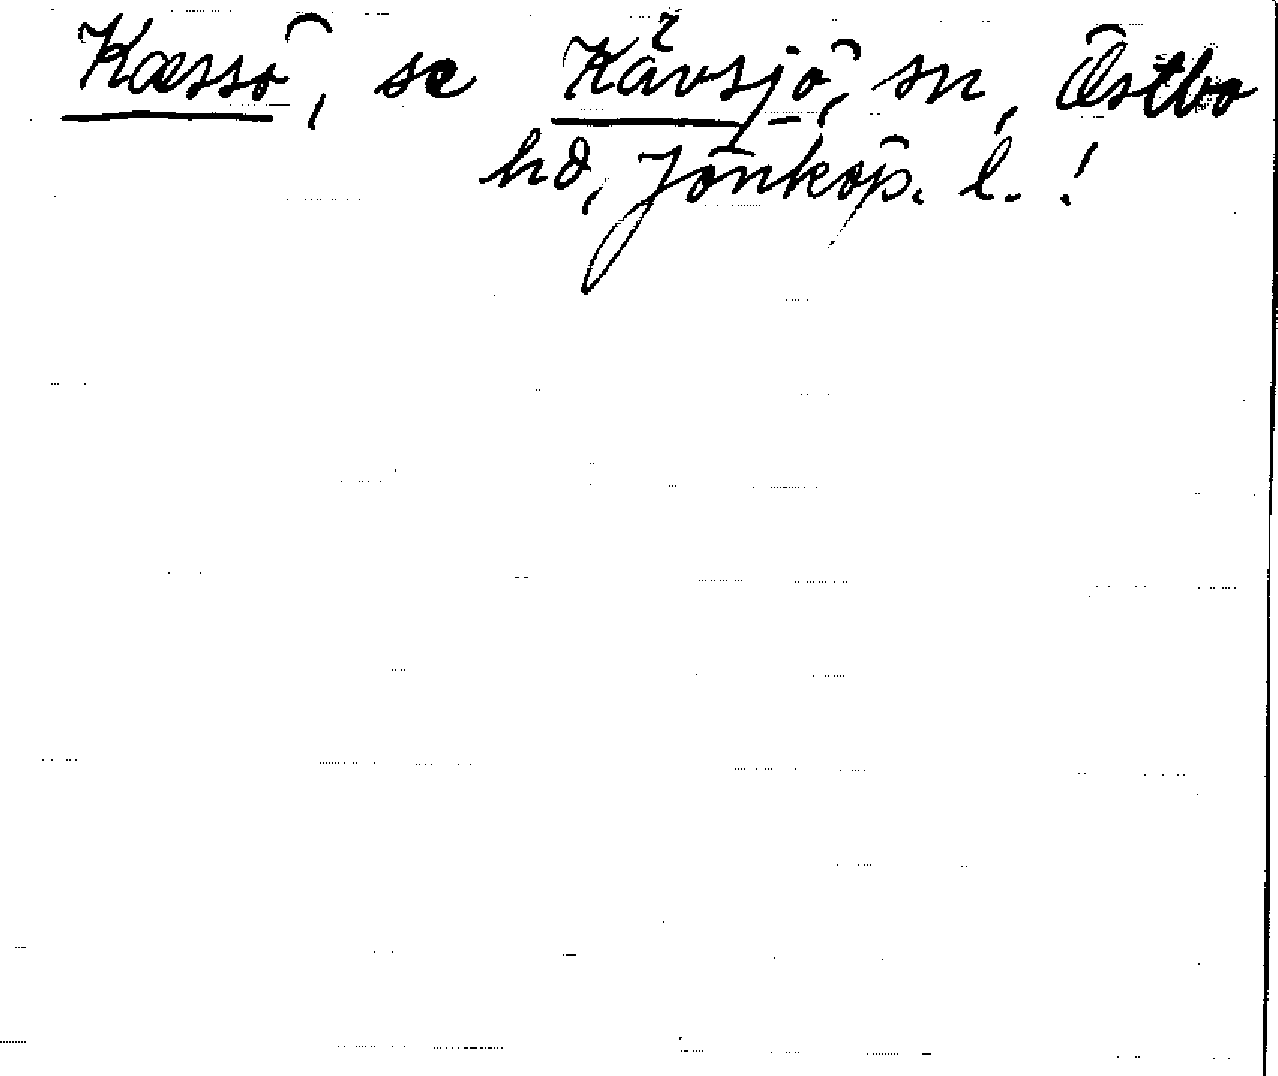 Kæssö, se Kävsjö, sn, Östbo
hd, Jönköp. l. !